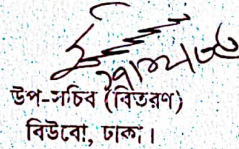 উপ-সচিব (বিতরণ)
বিউবো, ঢাকা।